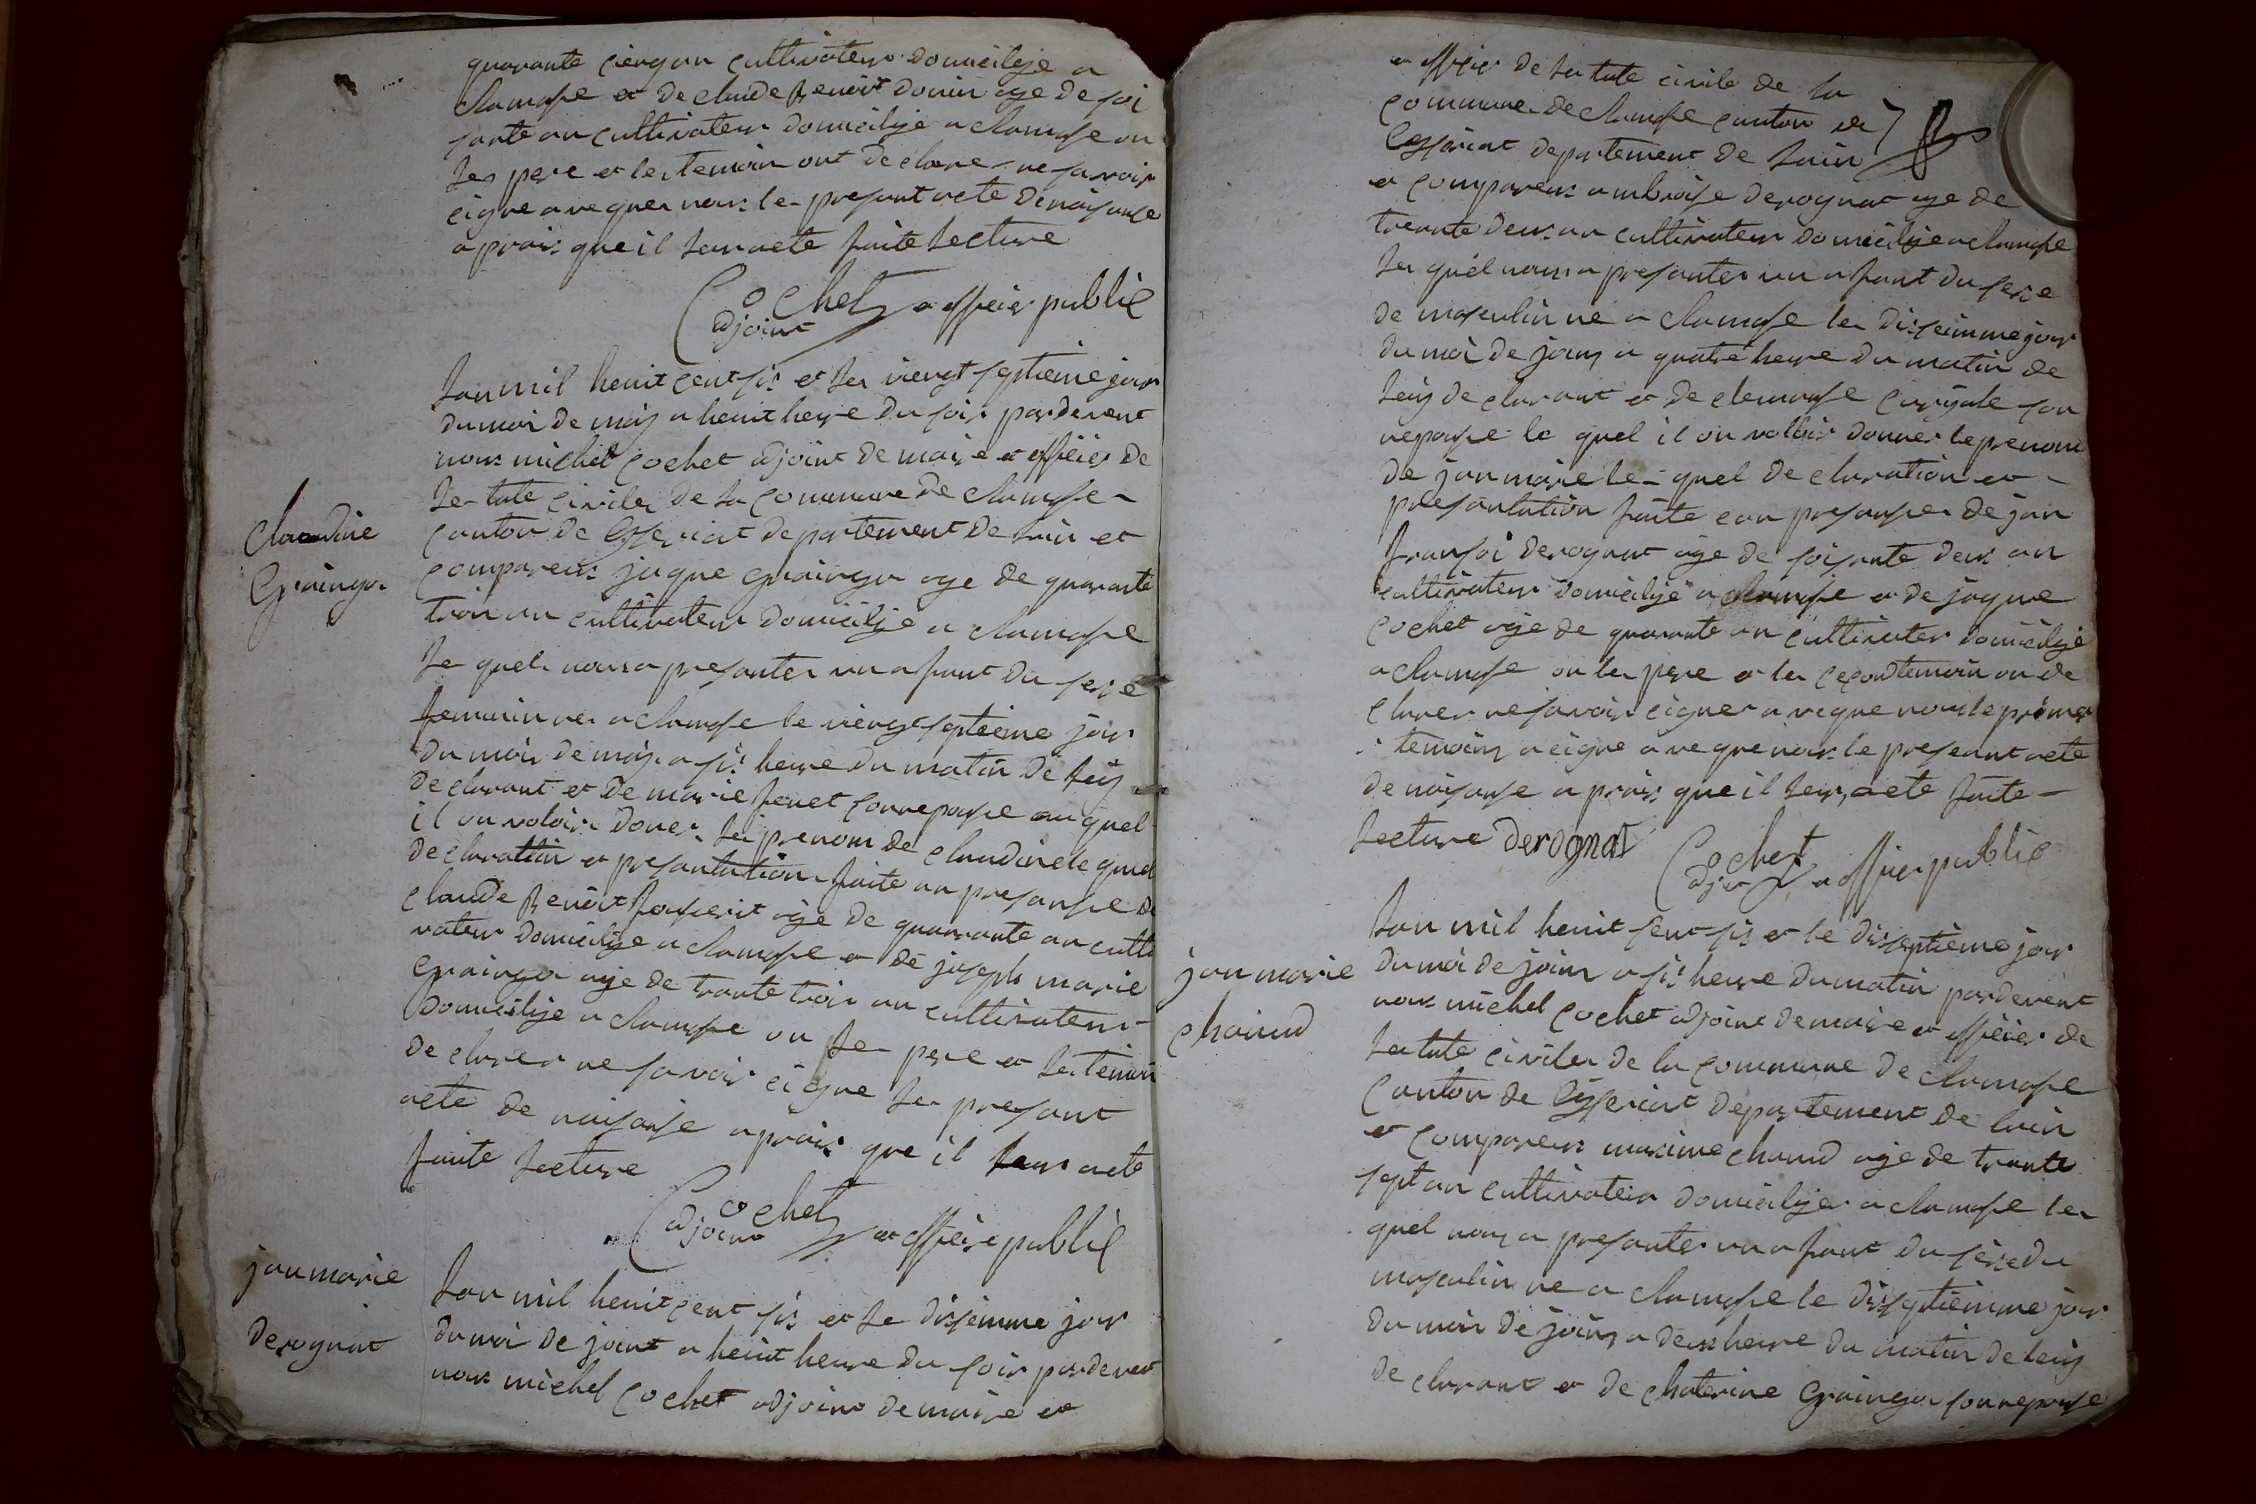 quarante cienq an cultivateur domicilije a
clamase et de claude Benoit donin age de soi
sante an cultivateur domicilije a clamose on
ler pere et les temoin ont declare ne savoir
cigne avequer nous le presant acte de naisanse
aprais que il tan acte faite lecture
Cochet adjoint a officier public
Claudine
Graingor
Lan mil heuit cent sis et ler viengt septieme jour
du moi de maij a heuit heure du soir pardevent
nous michel Cochet adjoint de maire et officier de
letate civiler de la Commune de clamose
Canton de Ceyseriat departement de lain et
compareus jaque Graingor age de quarante
trois an cultivateur domicilije a clamose
le quel nous a presanter un afant du sexe
femenin ne a clamose le viengt septieme jour
du mois de maij a sis heure du matin de luij
declarant et de marie fenet son nepouse auquel
il on voloir doner le prenom de claudine le quel
declaration et presantation faite an presanse de
claude Benoit age de quarante an culti
vateur domicilije a clamose et de joseph marie
Graingor age de trante trois an cultivateur
domicilije a clamose on le pere et les temoin
declarer ne savoir cigne le presant
acte de naisanse aprais que il leur acte
faite lecture
Cochet adjoint a officier public
jan marie
derognat
Lan mil heuit cent sis et le dissemme jour
du moi de joint a heuit heure du soir pardevent
nous michel Cochet adjoint de maire et
a officier de la tate civile de la
commune de clamose canton de
Ceyseriat departement de lain
et compareus ambroise derognat age de
treante deus an cultivateur domicilije a clamose
le quel nous a presanter un afant du sexe
de masculin ne a clamose le disseimme jour
du moi de joing a quatre heure du matin de
luij declarant et de clemanse son
nepouse le quel il on volloir donner le prenom
de jan marie le quel declaration et
presantation faite ean presanser de jan
fransoi derognat age de soisante deus an
cultivateur domicilije a clamose et de jaque
Cochet age de quarante an cultivater domicilije
a clamose on ler pere et ler cecon temoin on de
clarer ne savoir cigner aveque nous le primer
temoing a cigne aveque nous le preseant acte
de naisanse aprais que il leur acte faite
lecture derognat
Cochet adjoint a officier public
jan marie
chanud
Lan mil heuit sent sis et le disseptieme jour
du moi de joing a sis heure du matin pardevent
nous michel Cochet adjoint de maire et officier de
letate civiler de la commune de clamose
Canton de Ceyseriat departement de lain
et compareus maxime chanud age de trante
sept an cultivateur domicilijer a clamose ler
quel nous a presanter un afant du sexe du
masculin ne a clamose le disseptiemme jour
du moir de joing a deus heure du matin de luij
declarant et de chaterine Graingor son nepouse